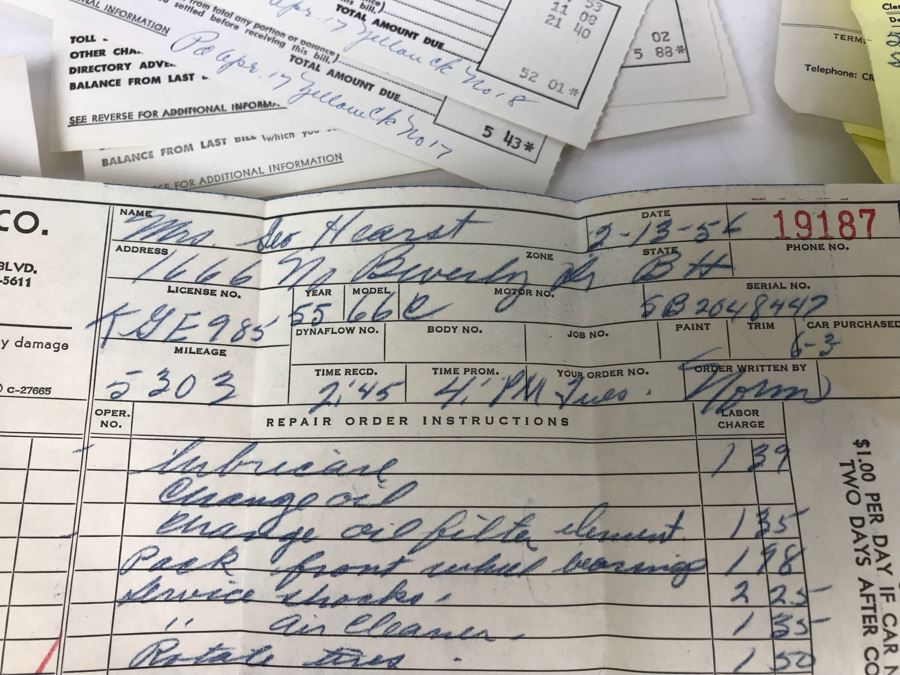 NAL INFORMATION
TOLL
OTHER CHA
DIRECTORY ADVE
BALANCE FROM LAST
SEE REVERSE FOR ADDITIONAL INFORMA
BALANCE FROM LAST BILL (which you
FOR ADDITIONAL INFORMATION
from total any portion or balance
settled before receiving this bill.)
TOTAL AMOUNT DUE
Pd Apr. 17 Yellow ck No 17
5 43*
this bill.)
TOTAL AMOUNT DUE
Apr. 17 Yellow ck No 18
53
11 08
21 40
52 01*
02
5 88*
TERM
Telephone: CR
CO.
BLVD.
-5611
y damage
C-27665
NAME Mrs. Geo Hearst DATE 2-13-56 19187
ADDRESS 1666 No Beverly Dr ZONE STATE BH PHONE NO.
LICENSE NO. KGE985 YEAR 55 MODEL 66C MOTOR NO. SERIAL NO. 5B2048447
DYNAFLOW NO. BODY NO. JOB NO. PAINT TRIM CAR PURCHASED 6-3
MILEAGE 5303 TIME RECD. 2:45 TIME PROM. 4:PM Tues. YOUR ORDER NO. ORDER WRITTEN BY Norm
OPER. NO. REPAIR ORDER INSTRUCTIONS LABOR CHARGE
Lubricate 1 39
Change oil
Change oil filter element 1 35
Pack front wheel bearings 1 98
Service shocks. 2 25
" Air Cleaner. 1 35
Rotate tires. 1 50
$1.00 PER DAY IF CAR N
TWO DAYS AFTER CO